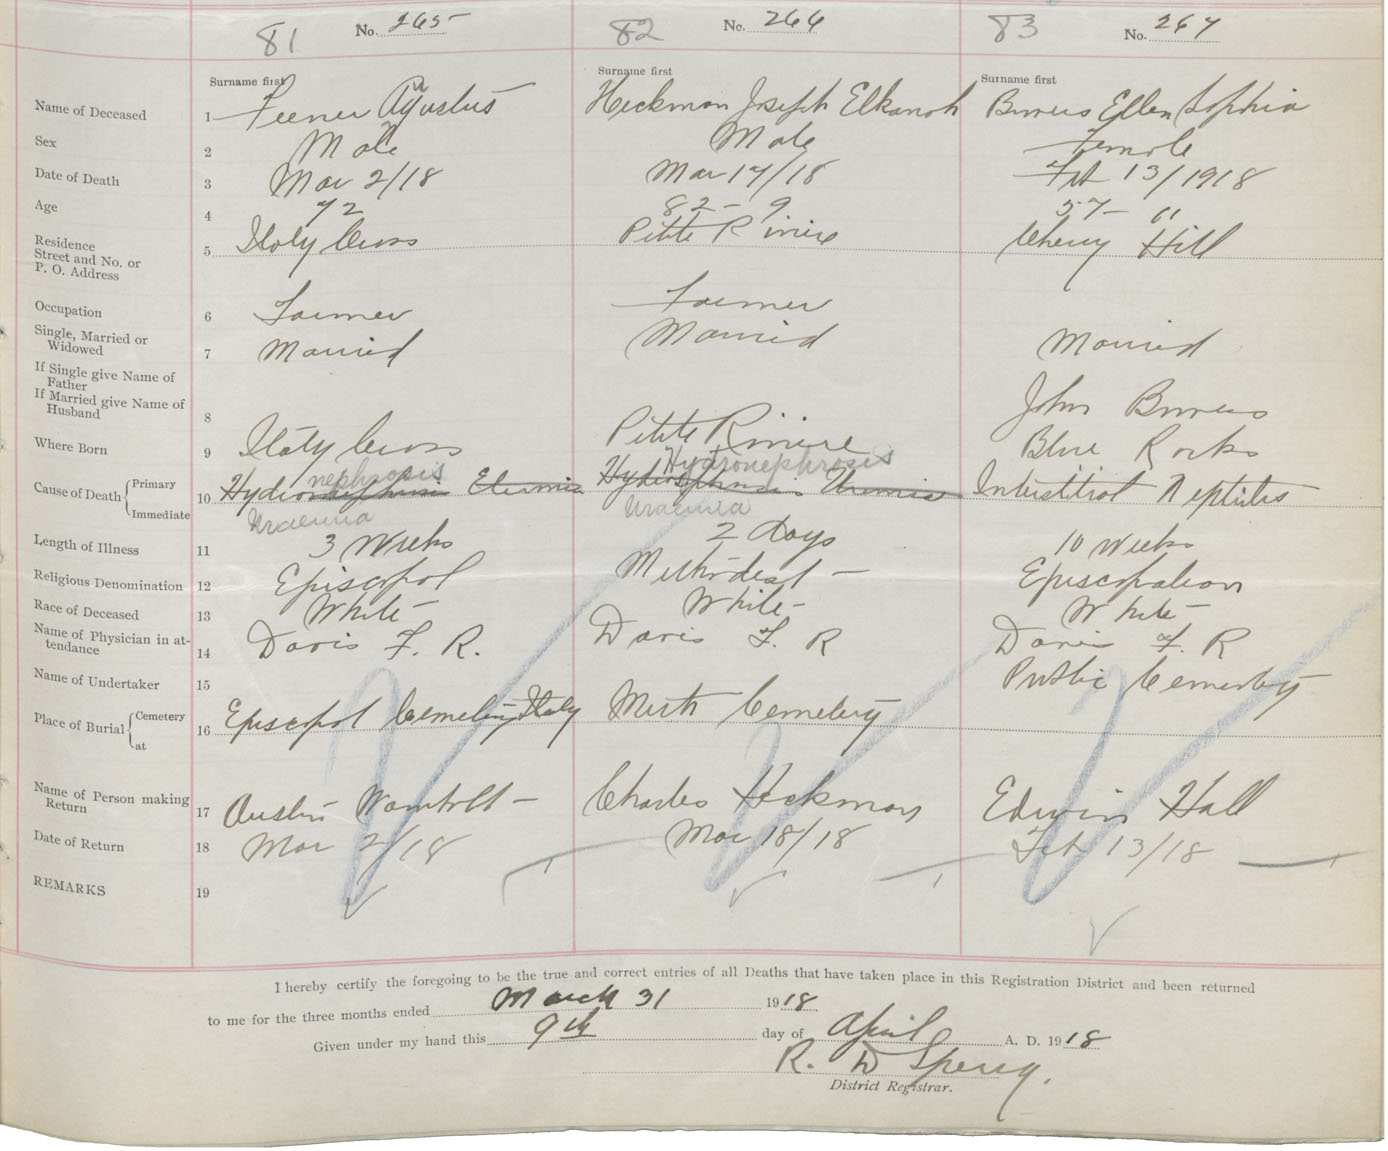 81 No. 265 82 No. 266 83 No. 267
Surname first Surname first Surname first
Name of Deceased 1 Feener Agustus Heckman Joseph Elkanah Bowers Ellen Sophia
Sex 2 Male Male Female
Date of Death 3 Mar 2/18 Mar 17/18 Feb 13/1918
Age 4 72 82 - 9 57 - 11
Residence
Street and No. or
P. O. Address 5 Italy Cross Petite Riviere Cherry Hill
Occupation 6 Farmer Farmer
Single, Married or
Widowed 7 Married Married Married
If Single give Name of
Father
If Married give Name of
Husband 8 John Bowers
Where Born 9 Italy Cross Petite Riviere Blue Rocks
nephrosis Hydronephrosis
Cause of Death Primary Immediate 10 Hydro Hydro Uremia Interstitial Nephritis
Uraemia Uraemia
Length of Illness 11 3 Weeks 2 Days 10 Weeks
Religious Denomination 12 Episcopal Methodest - Episcopalian
Race of Deceased 13 White - White - White -
Name of Physician in at-
tendance 14 Davis F. R. Davis F. R Davis F. R
Name of Undertaker 15 Public Cemetery
Place of Burial Cemetery at 16 Episcopal Cemetery Italy Meth Cemetery
Name of Person making
Return 17 Austin Wambolt - Charles Heckman Edwin Hall
Date of Return 18 Mar 2/18 Mar 18/18 Feb 13/18
REMARKS 19
I hereby certify the foregoing to be the true and correct entries of all Deaths that have taken place in this Registration District and been returned
to me for the three months ended March 31 1918
Given under my hand this 9th day of April A. D. 1918
R. D Sperry.
District Registrar.